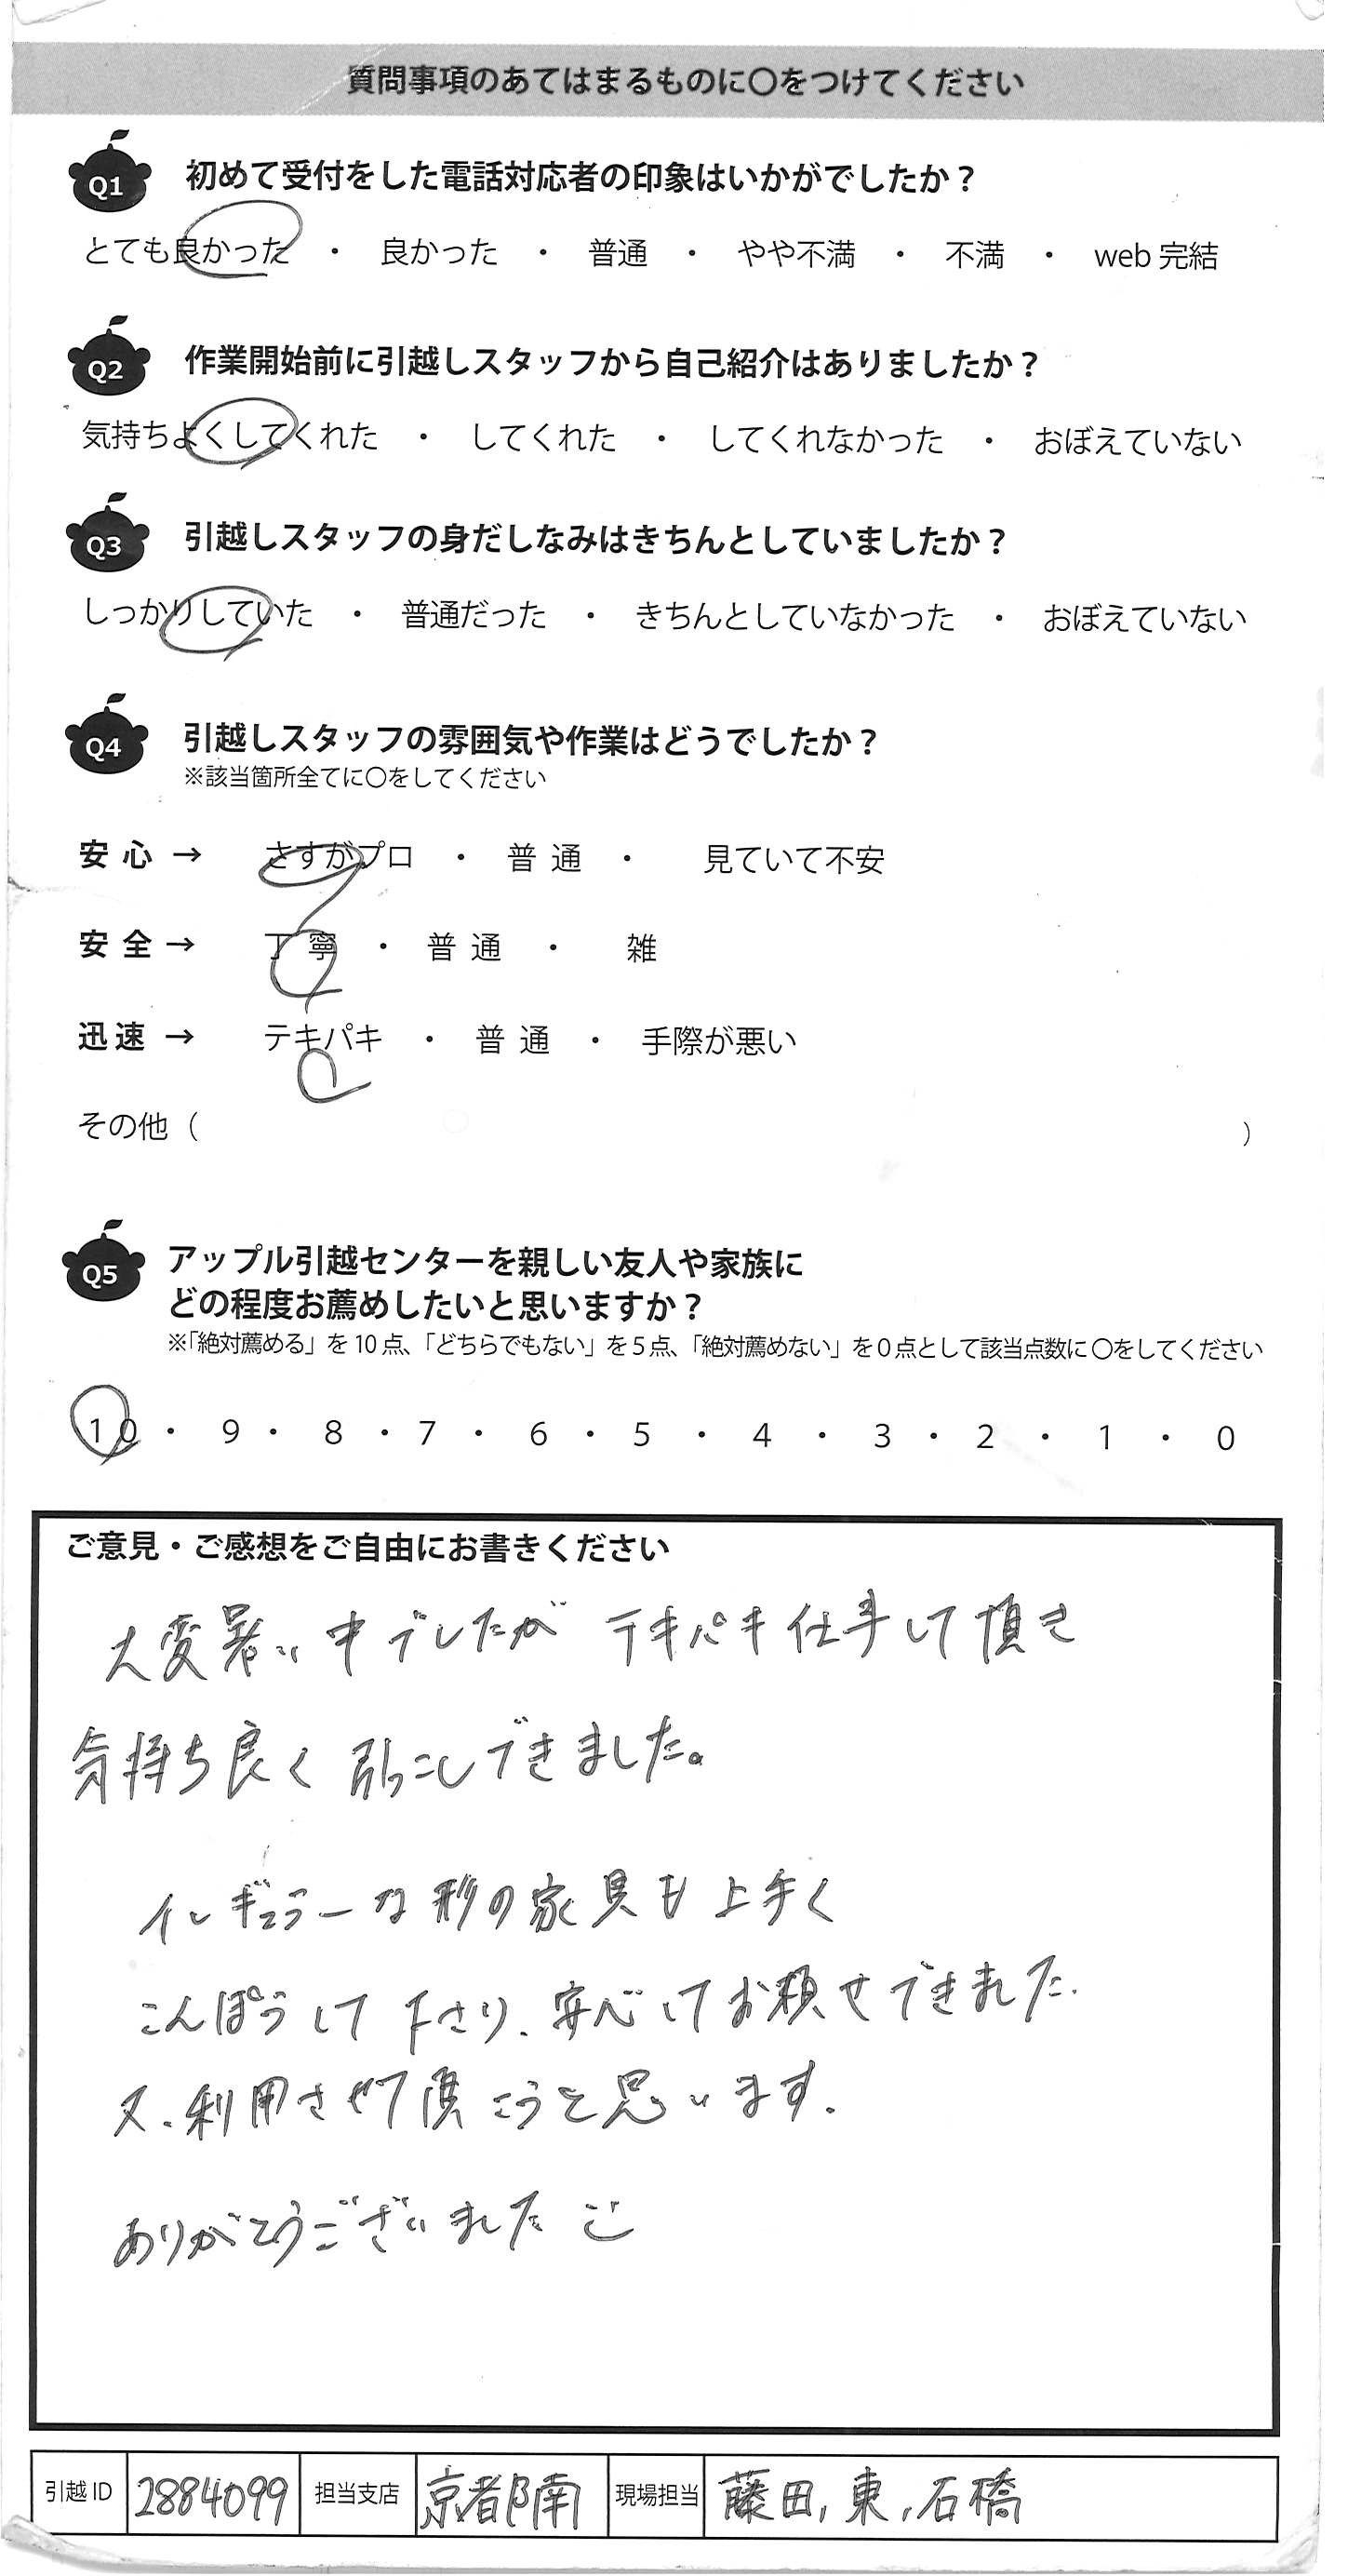 質問事項のあてはまるものに〇をつけてください
Q1 初めて受付をした電話対応者の印象はいかがでしたか？
とても良かった ・ 良かった ・ 普通 ・ やや不満 ・ 不満 ・ web 完結
Q2 作業開始前に引越しスタッフから自己紹介はありましたか？
気持ちよくしてくれた ・ してくれた ・ してくれなかった ・ おぼえていない
Q3 引越しスタッフの身だしなみはきちんとしていましたか？
しっかりしていた ・ 普通だった ・ きちんとしていなかった ・ おぼえていない
Q4 引越しスタッフの雰囲気や作業はどうでしたか？
※該当箇所全てに〇をしてください
安心 → さすがプロ ・ 普通 ・ 見ていて不安
安全 → 丁寧 ・ 普通 ・ 雑
迅速 → テキパキ ・ 普通 ・ 手際が悪い
その他（ ）
Q5 アップル引越センターを親しい友人や家族に
どの程度お薦めしたいと思いますか？
※「絶対薦める」を 10 点、「どちらでもない」を 5 点、「絶対薦めない」を 0 点として該当点数に 〇をしてください
10 ・ 9 ・ 8 ・ 7 ・ 6 ・ 5 ・ 4 ・ 3 ・ 2 ・ 1 ・ 0
ご意見・ご感想をご自由にお書きください
大変暑い中でしたが テキパキ仕事して頂き
気持ち良く 引っこしできました。
イレギュラーな形の家具も上手く
こんぽうして下さり、安心してお頼せできました.
又、利用させて頂こうと思います.
ありがとうございました
引越 ID 2884099 担当支店 京都南 現場担当 藤田, 東, 石橋